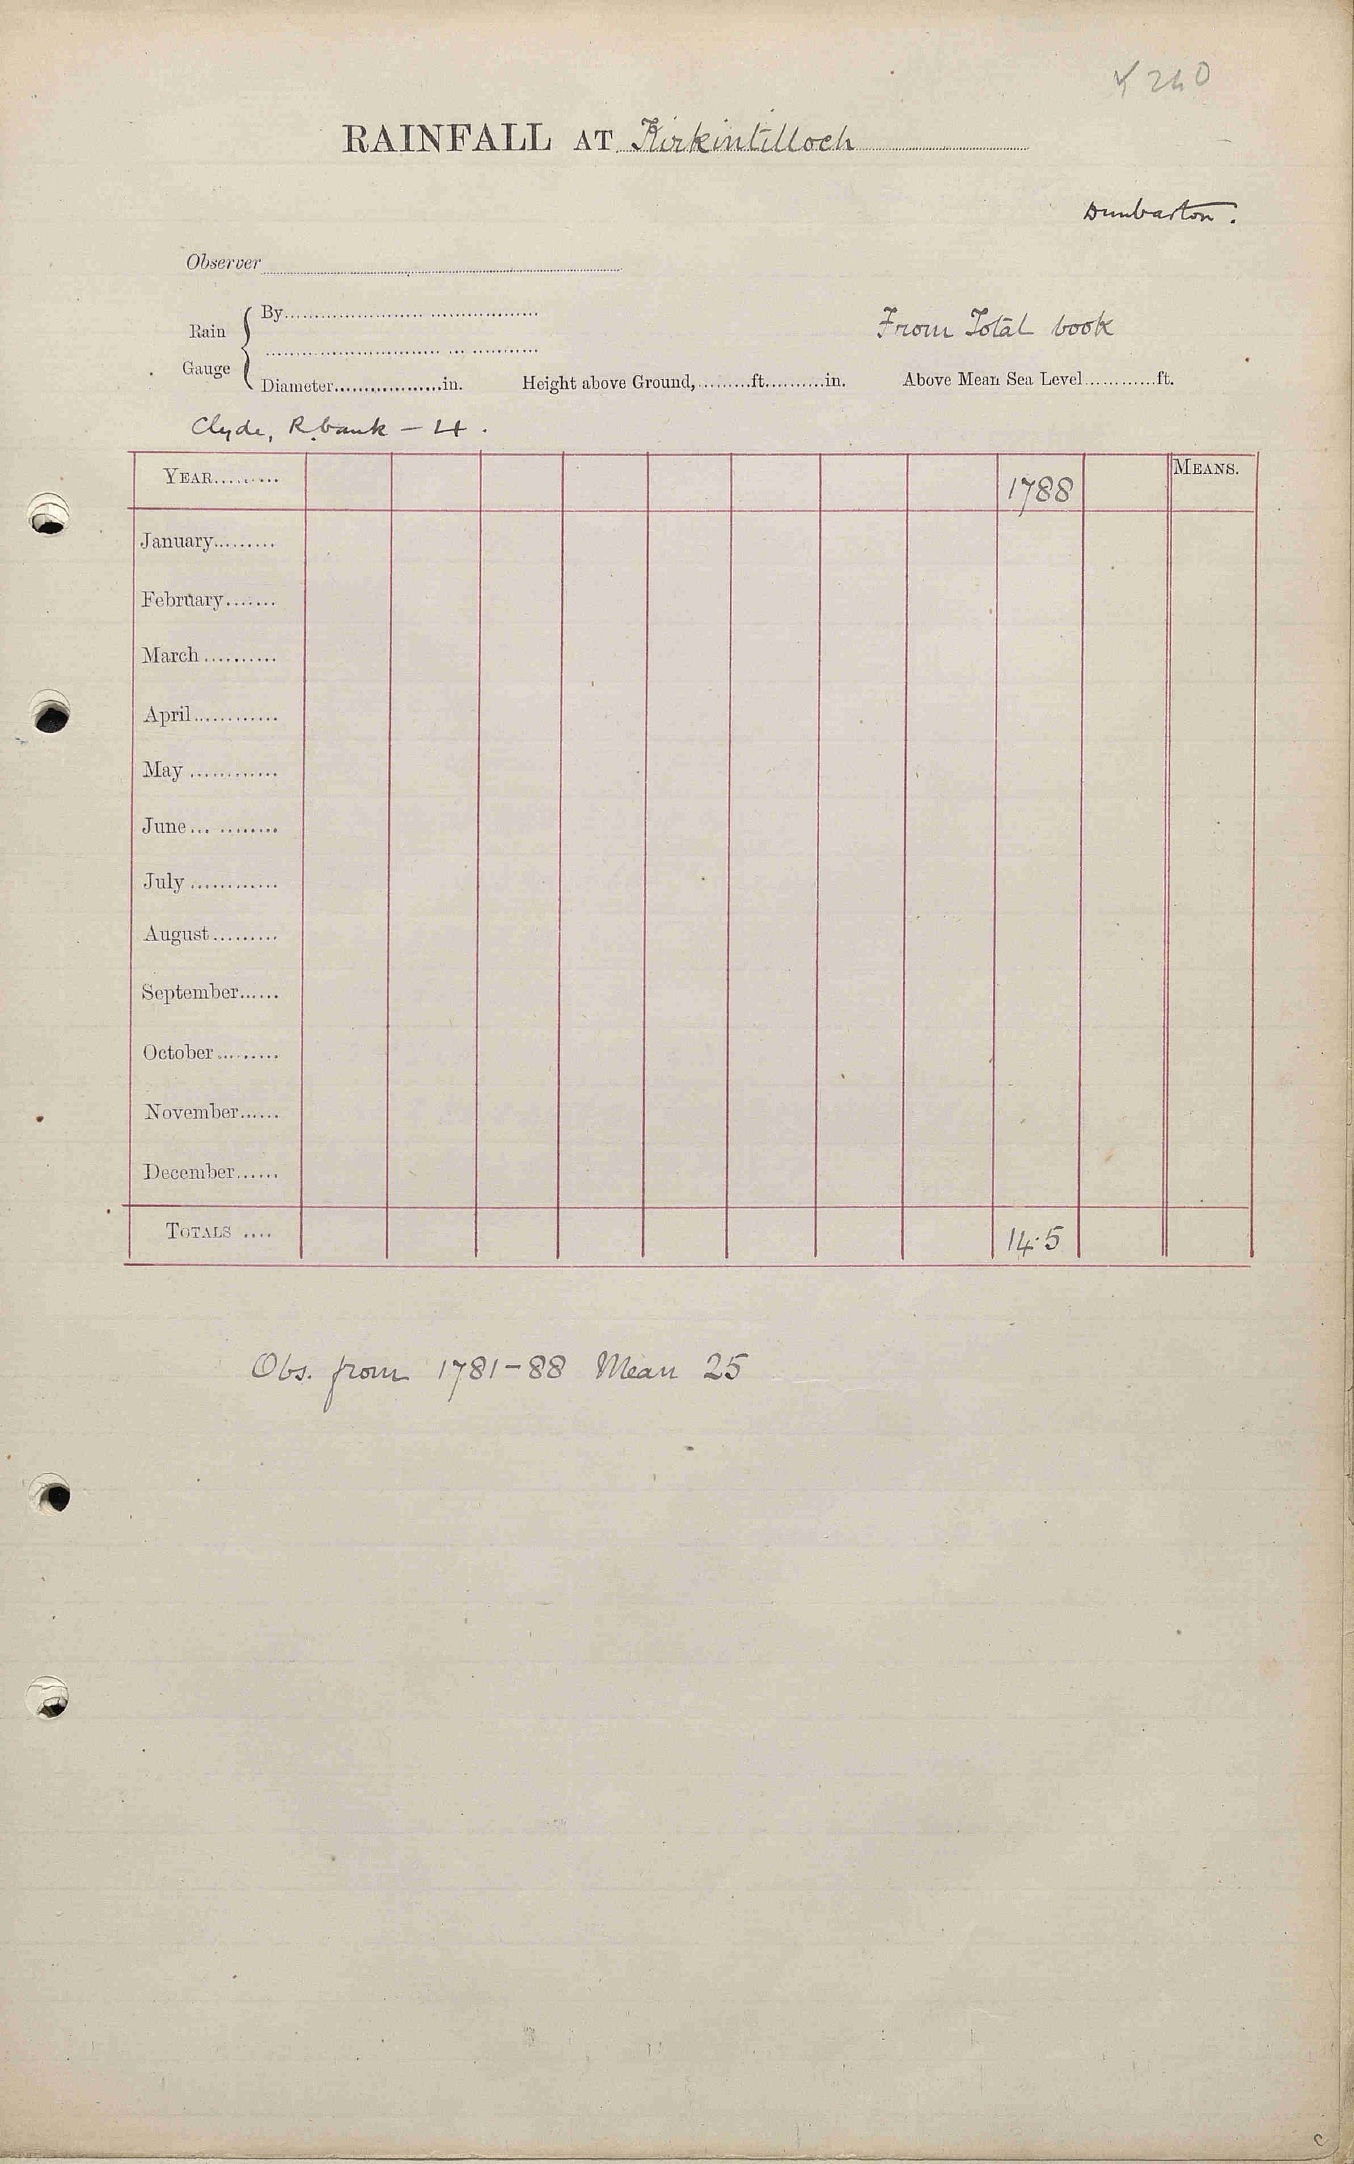 260
RAINFALL AT Kirkintilloch
Dumbarton.
Observer
Rain Gauge { By
From Total book
Diameter in. Height above Ground, ft. in. Above Mean Sea Level ft.
Clyde, R. bank – 4.
YEAR 1788 MEANS.
January
February
March
April
May
June
July
August
September
October
November
December
TOTALS 14.5
Obs. from 1781-88 Mean 25